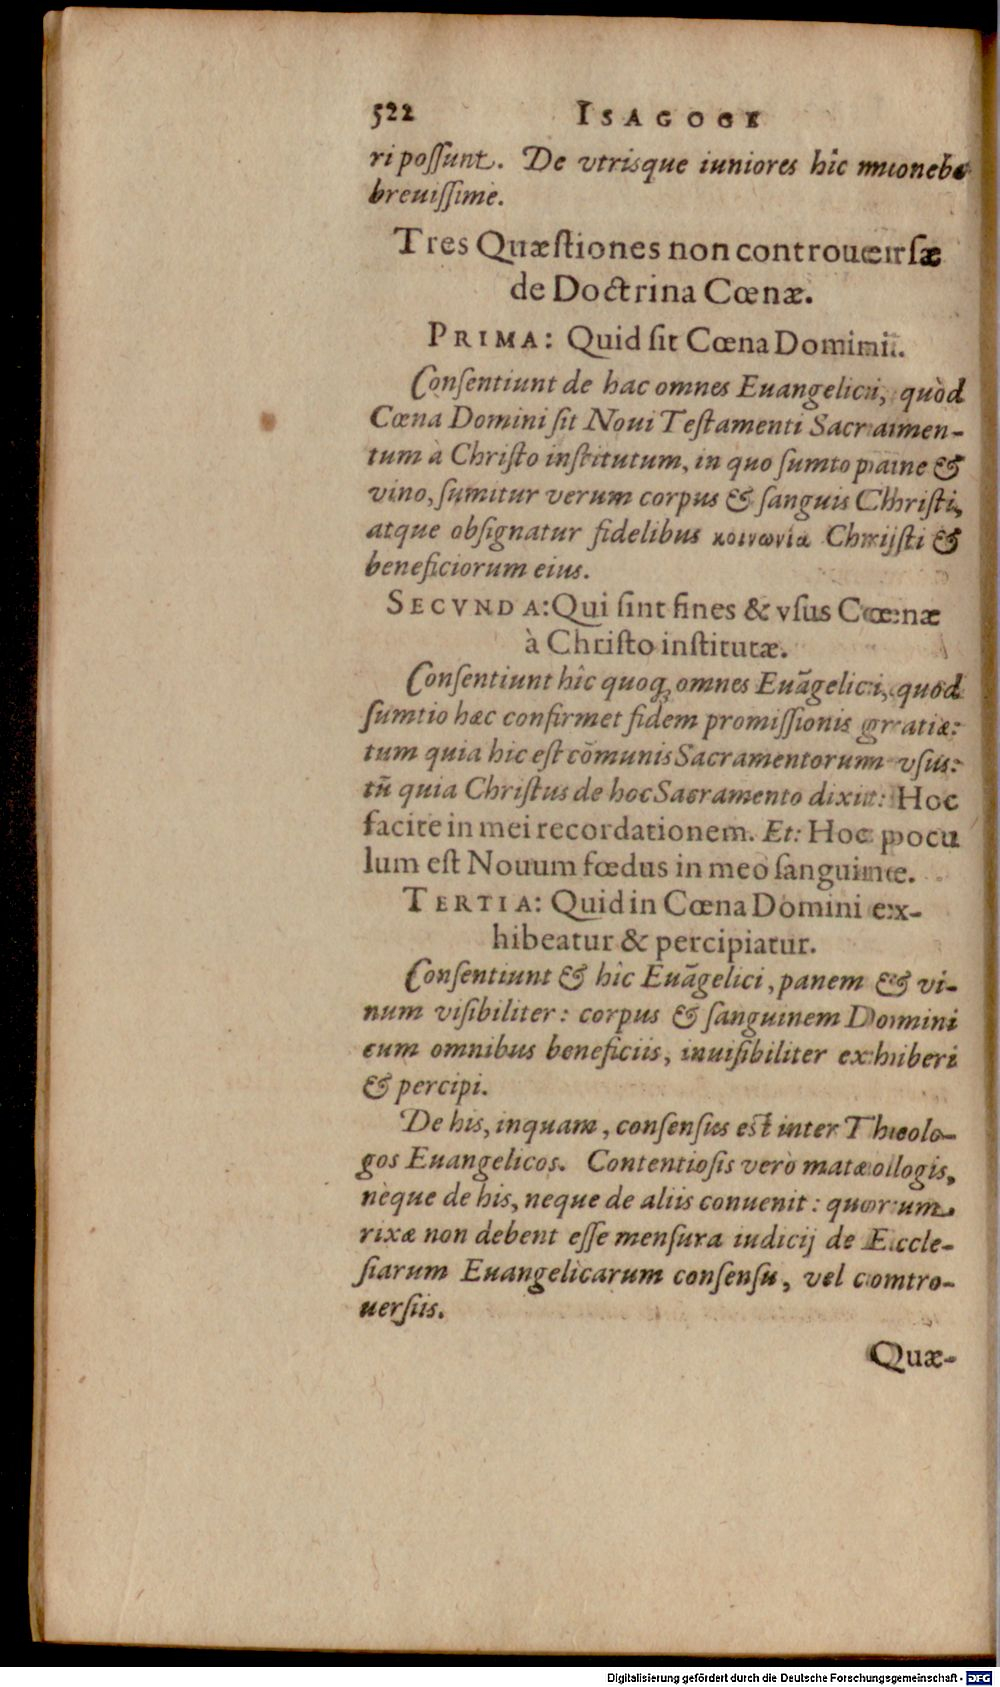 522 ISAGOGE
ri possunt. De vtrisque iuniores hîc monebo
breuissimè.
Tres Quæstiones non controuersæ
de Doctrina Cœnæ.
PRIMA: Quid sit Cœna Domini.
Consentiunt de hac omnes Euangelici, quòd
Cœna Domini sit Noui Testamenti Sacramen-
tum à Christo institutum, in quo sumto pane &
vino, sumitur verum corpus & sanguis Christi,
atque obsignatur fidelibus κοινωνία Christi &
beneficiorum eius.
SECVNDA: Qui sint fines & vsus Cœnæ
à Christo institutæ.
Consentiunt hîc quoq; omnes Euãgelici, quod
sumtio hæc confirmet fidem promissionis gratiæ:
tum quia hic est cõmunis Sacramentorum vsus:
tũ quia Christus de hoc Sacramento dixit: Hoc
facite in mei recordationem. Et: Hoc pocu
lum est Nouum fœdus in meo sanguine.
TERTIA: Quid in Cœna Domini ex-
hibeatur & percipiatur.
Consentiunt & hîc Euãgelici, panem & vi-
num visibiliter: corpus & sanguinem Domini
cum omnibus beneficiis, inuisibiliter exhiberi
& percipi.
De his, inquam, consensus est inter Theolo-
gos Euangelicos. Contentiosis verò matæologis,
nèque de his, neque de aliis conuenit: quorum
rixæ non debent esse mensura iudicij de Eccle-
siarum Euangelicarum consensu, vel contro-
uersiis.
Quæ-
Digitalisierung gefördert durch die Deutsche Forschungsgemeinschaft - DFG